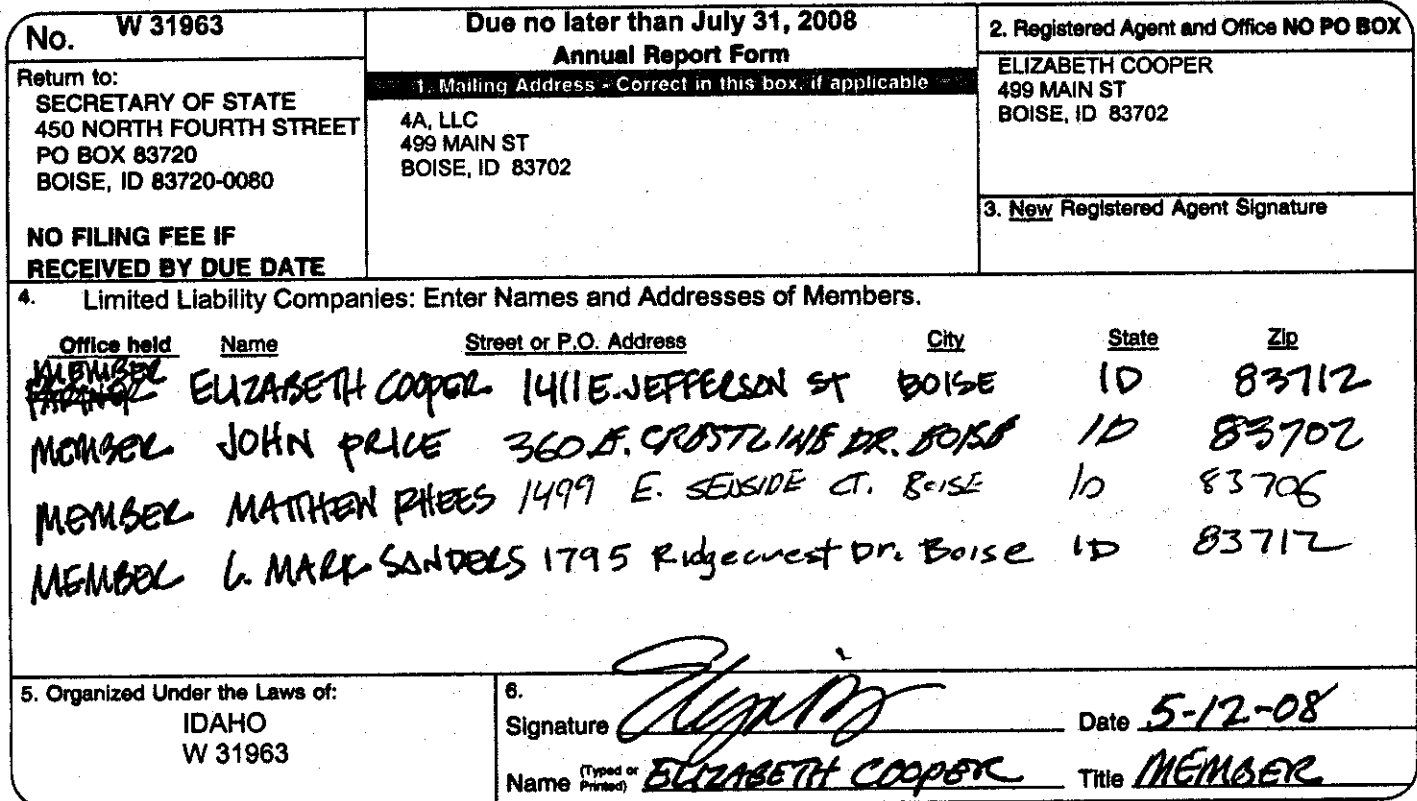 No. W 31963
Return to:
SECRETARY OF STATE
450 NORTH FOURTH STREET
PO BOX 83720
BOISE, ID 83720-0080
NO FILING FEE IF
RECEIVED BY DUE DATE
Due no later than July 31, 2008
Annual Report Form
1. Mailing Address - Correct in this box, if applicable
4A, LLC
499 MAIN ST
BOISE, ID 83702
2. Registered Agent and Office NO PO BOX
ELIZABETH COOPER
499 MAIN ST
BOISE, ID 83702
3. New Registered Agent Signature
4. Limited Liability Companies: Enter Names and Addresses of Members.
Office held Name Street or P.O. Address City State Zip
MEMBER
PARTNER ELIZABETH COOPER 1411 E. JEFFERSON ST BOISE ID 83712
MEMBER JOHN PRICE 360 E. CRESTLINE DR. BOISE ID 83702
MEMBER MATTHEW RHEES 1499 E. CT. BOISE ID 83706
MEMBER C. MARK SANDERS 1795 Ridgecrest Dr. Boise ID 83712
5. Organized Under the Laws of:
IDAHO
W 31963
6.
Signature Date 5-12-08
Name (Typed or Printed) ELIZABETH COOPER Title MEMBER